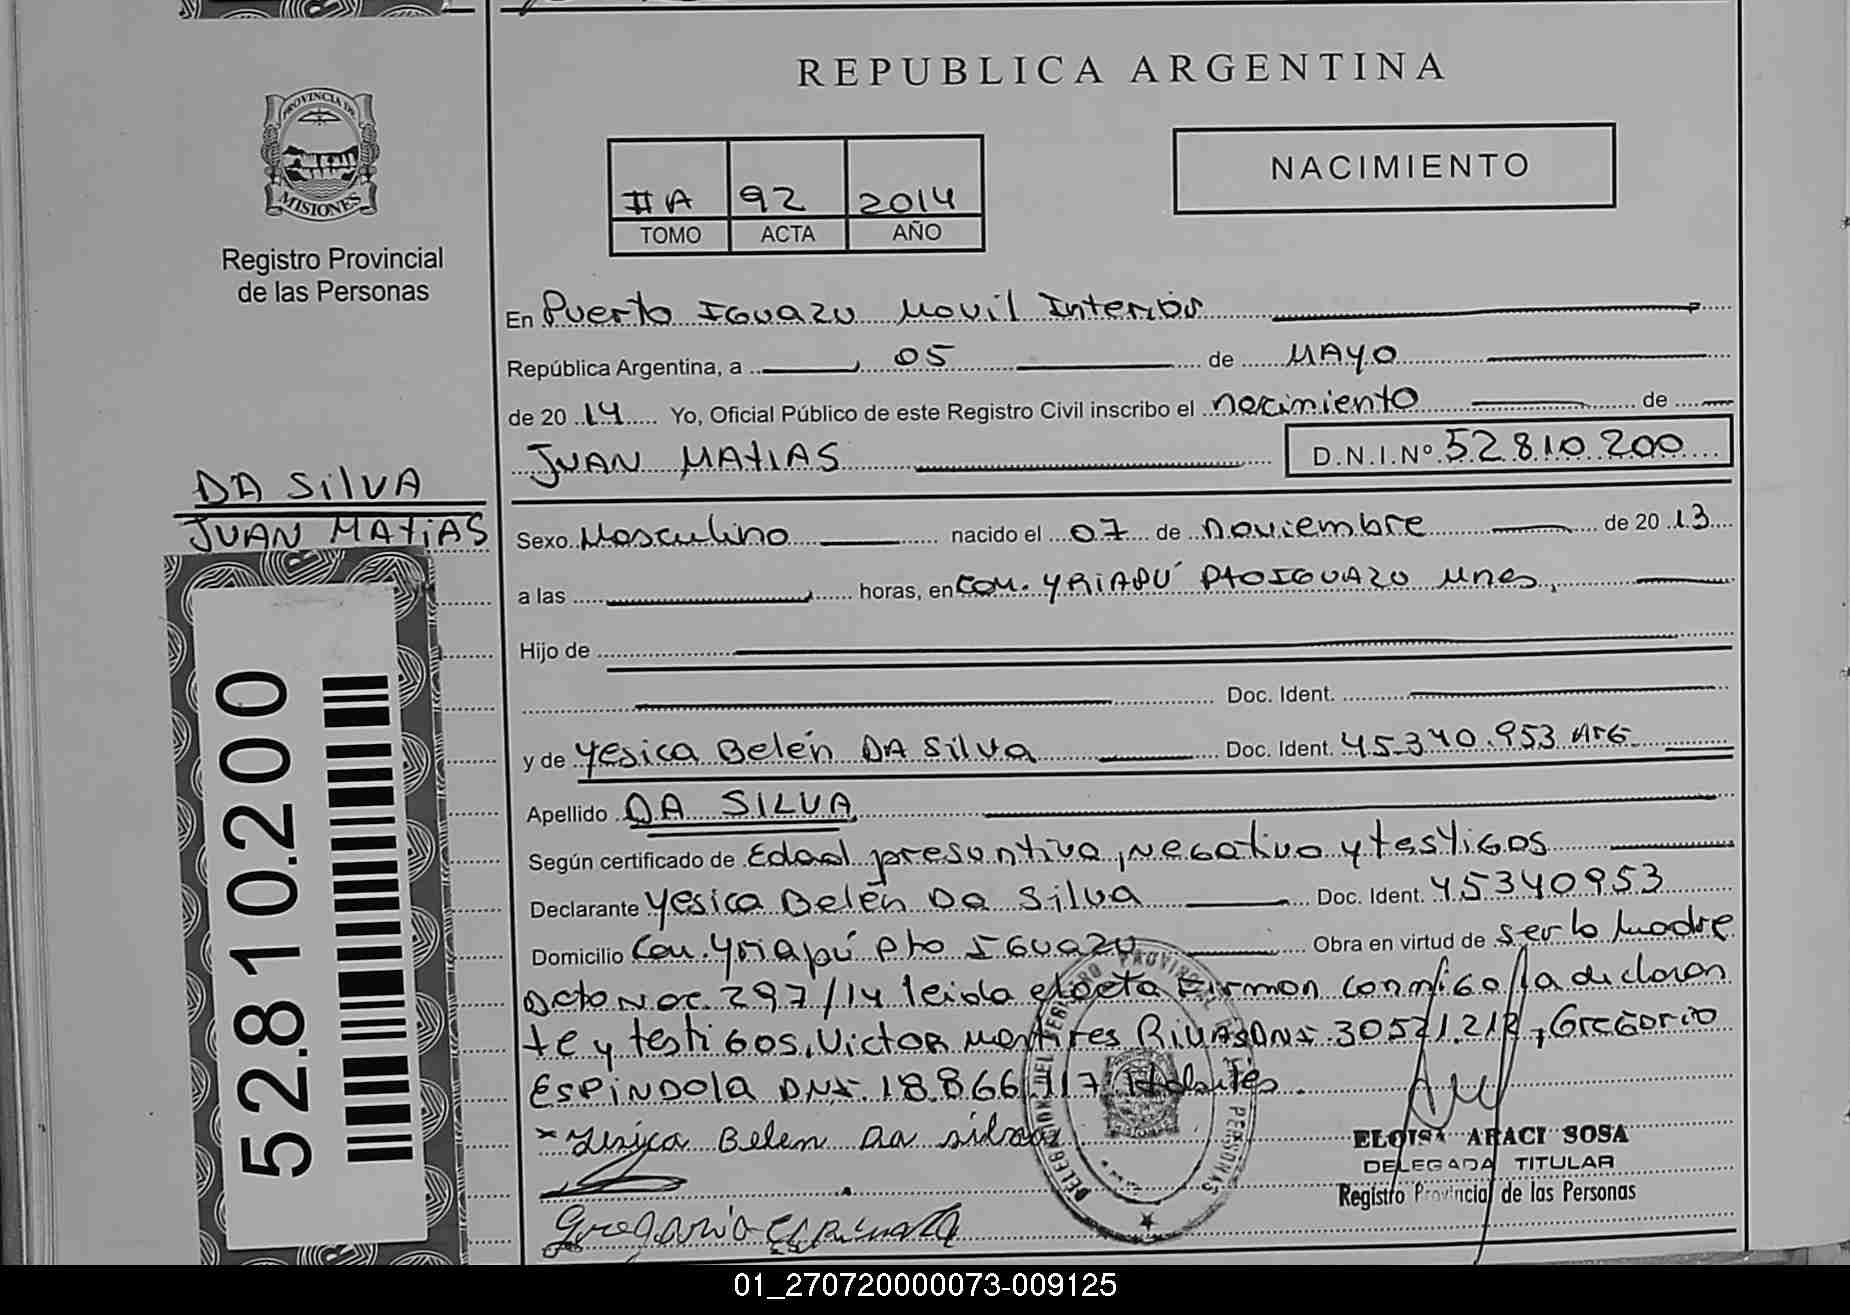 REPUBLICA ARGENTINA
PROVINCIA DE
MISIONES
Registro Provincial
de las Personas
NACIMIENTO
II A 92 2014
TOMO ACTA AÑO
En Puerto Iguazu Movil Interior
República Argentina, a 05 de MAYO
de 20 14 Yo, Oficial Público de este Registro Civil inscribo el nacimiento de
JUAN MATIAS D.N.I.Nº 52.810.200
DA SilVA
JUAN MATiAS
Sexo Masculino nacido el 07 de noviembre de 20 13
a las horas, en Com. YRIAPÚ Pto IGUAZU Mnes,
Hijo de
Doc. Ident.
y de Yesica Belén DA Silva Doc. Ident. 45.340.953 Arg
Apellido DA SILVA
Según certificado de Edad presuntiva, negativo y testigos
Declarante Yesica Belén Da Silva Doc. Ident. 45340953
Domicilio Com. Yriapú Pto Iguazu Obra en virtud de ser la madre
297/14 leida el acta firman conmigo la declaran
te y testigos, Victor RIVAS DNI 30521.212, Gregorio
ESPINDOLA DNI. 18.866.117
Yesica Belen Da silva
Gregorio
52.810.200
ELOISA ARACI SOSA
DELEGADA TITULAR
Registro Provincial de las Personas
01_270720000073-009125